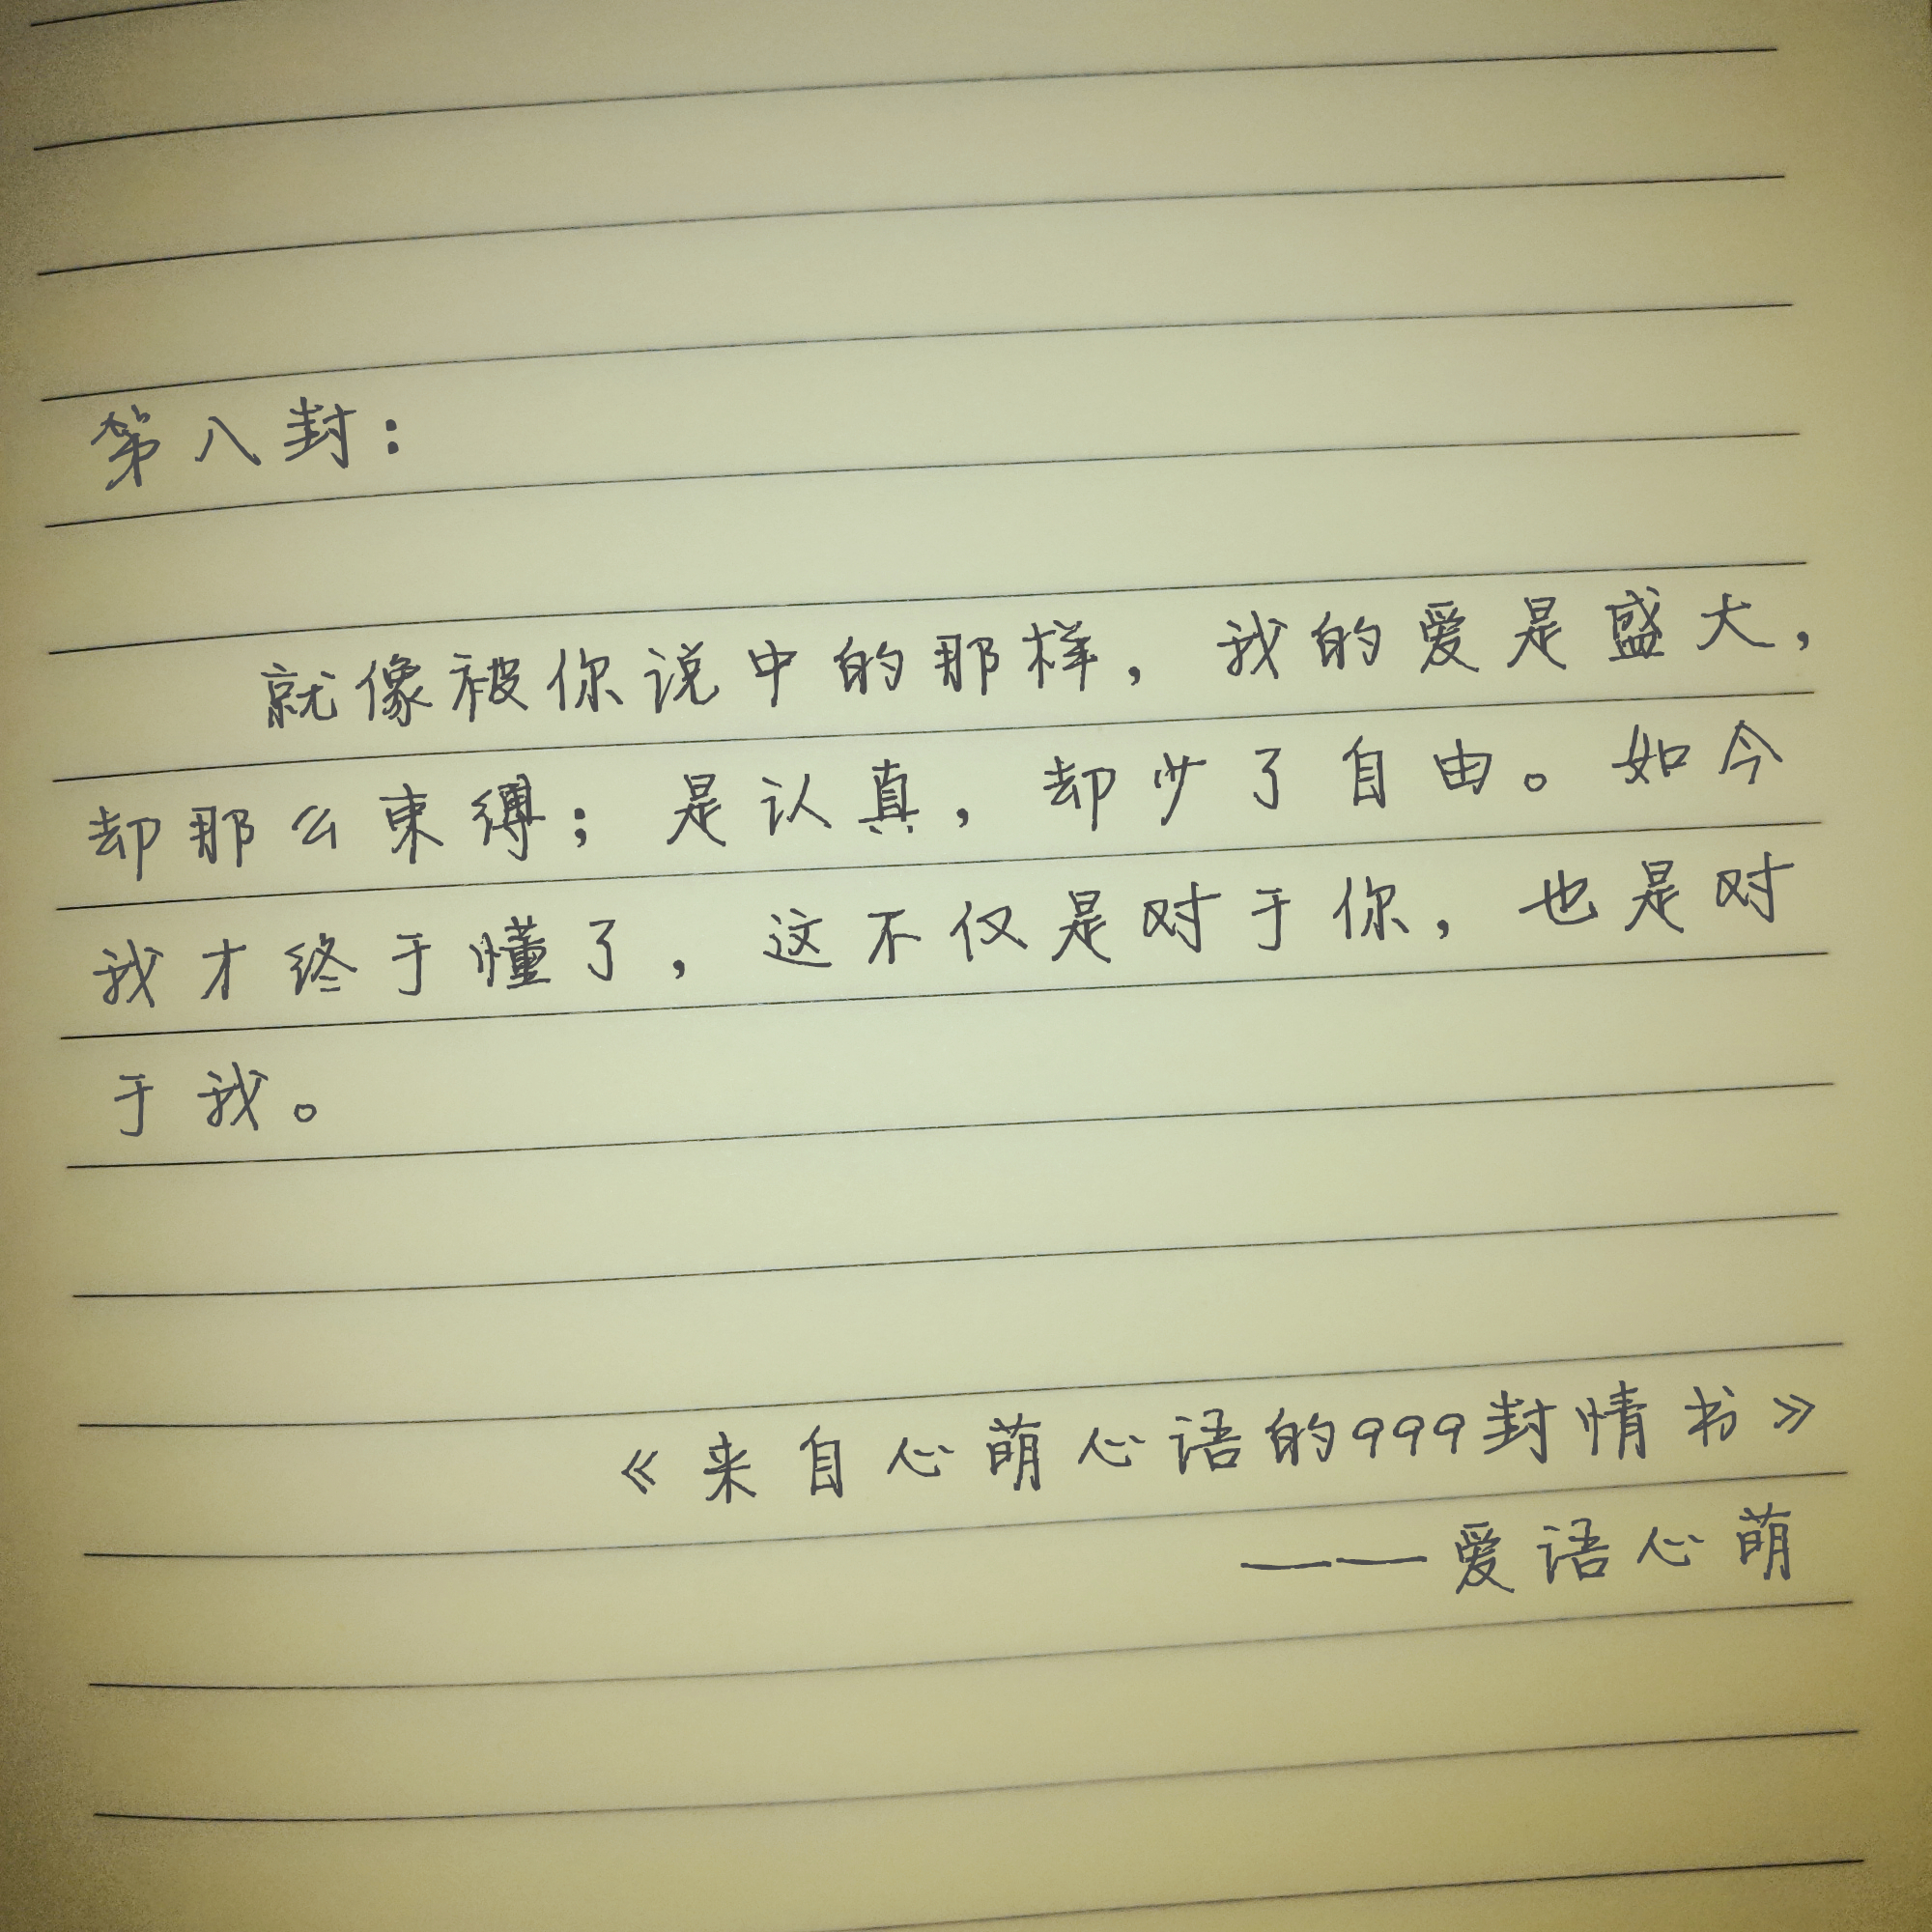 第八封：
就像被你说中的那样，我的爱是盛大，
却那么束缚；是认真，却少了自由。如今
我才终于懂了，这不仅是对于你，也是对
于我。
《来自心萌心语的999封情书》
——爱语心萌